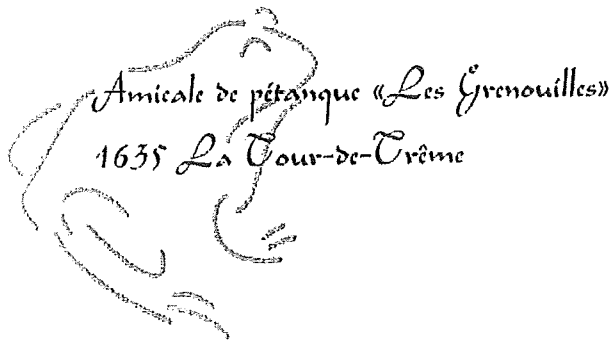 Amicale de pétanque «Les Grenouilles»
1635 La Tour-de-Trême